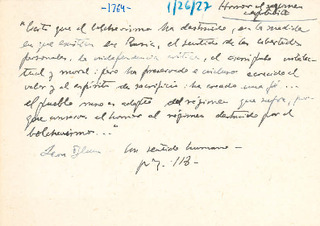 -1764-
1/26/27
Honor al régimen
capitalista
"Cierto que el bolchevismo ha destruido, en la medida
en que existían en Rusia, el sentido de las libertades
personales, la independencia crítica, el escrúpulo intelec-
tual y moral; pero ha preservado e incluso acrecido el
valor y el espíritu de sacrificio; ha creado una fe ...
el pueblo ruso es adepto del régimen que sufre, por-
que conserva el horror al régimen destruido por el
bolchevismo..."
Leon Blum - Un sentido humano -
pág. 113-